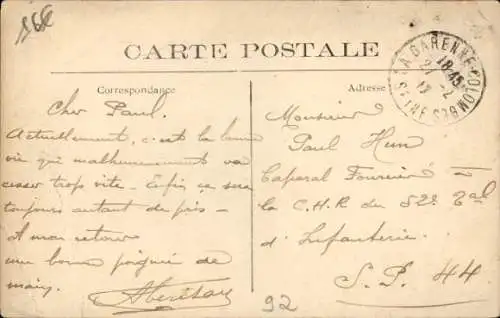 16€
CARTE POSTALE
Correspondance
Adresse
LA GARENNE-COLOMBES
SEINE
18-45
27-2
17
Cher Paul.
Actuellement, c'est la bonne
vie qui malheureusement va
cesser trop vite - Enfin ça sera
toujours autant de pris -
A mon retour
une bonne poignée de
main,
Monsieur
Paul Hun
Caporal Fourrier à
la C.H.R du 52e
d'Infanterie.
S.P. 44
92